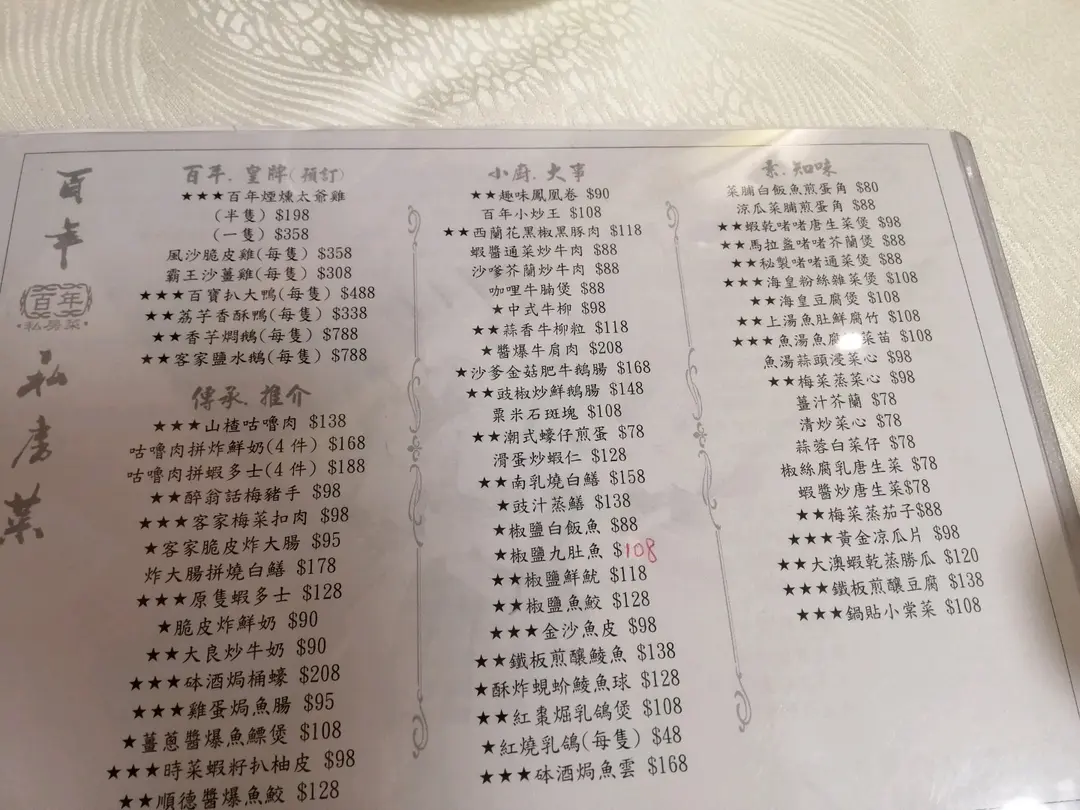 百年私房菜
百年
•私房菜•
百年.皇牌(預訂)
★★★百年煙燻太爺雞
(半隻) $198
(一隻) $358
風沙脆皮雞(每隻) $358
霸王沙薑雞(每隻) $308
★★★百寶扒大鴨(每隻) $488
★★荔芋香酥鴨(每隻) $338
★★香芋燜鵝(每隻) $788
★★客家鹽水鵝(每隻) $788
傳承.推介
★★★山楂咕嚕肉 $138
咕嚕肉拼炸鮮奶(4 件) $168
咕嚕肉拼蝦多士(4 件) $188
★★醉翁話梅豬手 $98
★★★客家梅菜扣肉 $98
★客家脆皮炸大腸 $95
炸大腸拼燒白鱔 $178
★★★原隻蝦多士 $128
★脆皮炸鮮奶 $90
★★大良炒牛奶 $90
★★★砵酒焗桶蠔 $208
★★★雞蛋焗魚腸 $95
★薑蔥醬爆魚鰾煲 $108
★★★時菜蝦籽扒柚皮 $98
★★順德醬爆魚鮫 $128
小廚.大事
★★趣味鳳凰卷 $90
百年小炒王 $108
★★西蘭花黑椒黑豚肉 $118
蝦醬通菜炒牛肉 $88
沙嗲芥蘭炒牛肉 $88
咖哩牛腩煲 $88
★中式牛柳 $98
★★蒜香牛柳粒 $118
★醬爆牛肩肉 $208
★沙爹金菇肥牛鵝腸 $168
★★豉椒炒鮮鵝腸 $148
粟米石斑塊 $108
★★潮式蠔仔煎蛋 $78
滑蛋炒蝦仁 $128
★★南乳燒白鱔 $158
★豉汁蒸鱔 $138
★椒鹽白飯魚 $88
★椒鹽九肚魚 $108
★★椒鹽鮮魷 $118
★★椒鹽魚鮫 $128
★★★金沙魚皮 $98
★★鐵板煎釀鯪魚 $138
★酥炸蜆蚧鯪魚球 $128
★★紅棗焗乳鴿煲 $108
★紅燒乳鴿(每隻) $48
★★★砵酒焗魚雲 $168
素.知味
菜脯白飯魚煎蛋角 $80
涼瓜菜脯煎蛋角 $88
★★蝦乾啫啫唐生菜煲 $98
★★馬拉盞啫啫芥蘭煲 $88
★★秘製啫啫通菜煲 $88
★★★海皇粉絲雜菜煲 $108
★★海皇豆腐煲 $108
★★上湯魚肚鮮腐竹 $108
★★★魚湯魚腐 菜苗 $108
魚湯蒜頭浸菜心 $98
★★梅菜蒸菜心 $98
薑汁芥蘭 $78
清炒菜心 $78
蒜蓉白菜仔 $78
椒絲腐乳唐生菜 $78
蝦醬炒唐生菜$78
★★梅菜蒸茄子$88
★★★黃金涼瓜片 $98
★★大澳蝦乾蒸勝瓜 $120
★★★鐵板煎釀豆腐 $138
★★★鍋貼小棠菜 $108